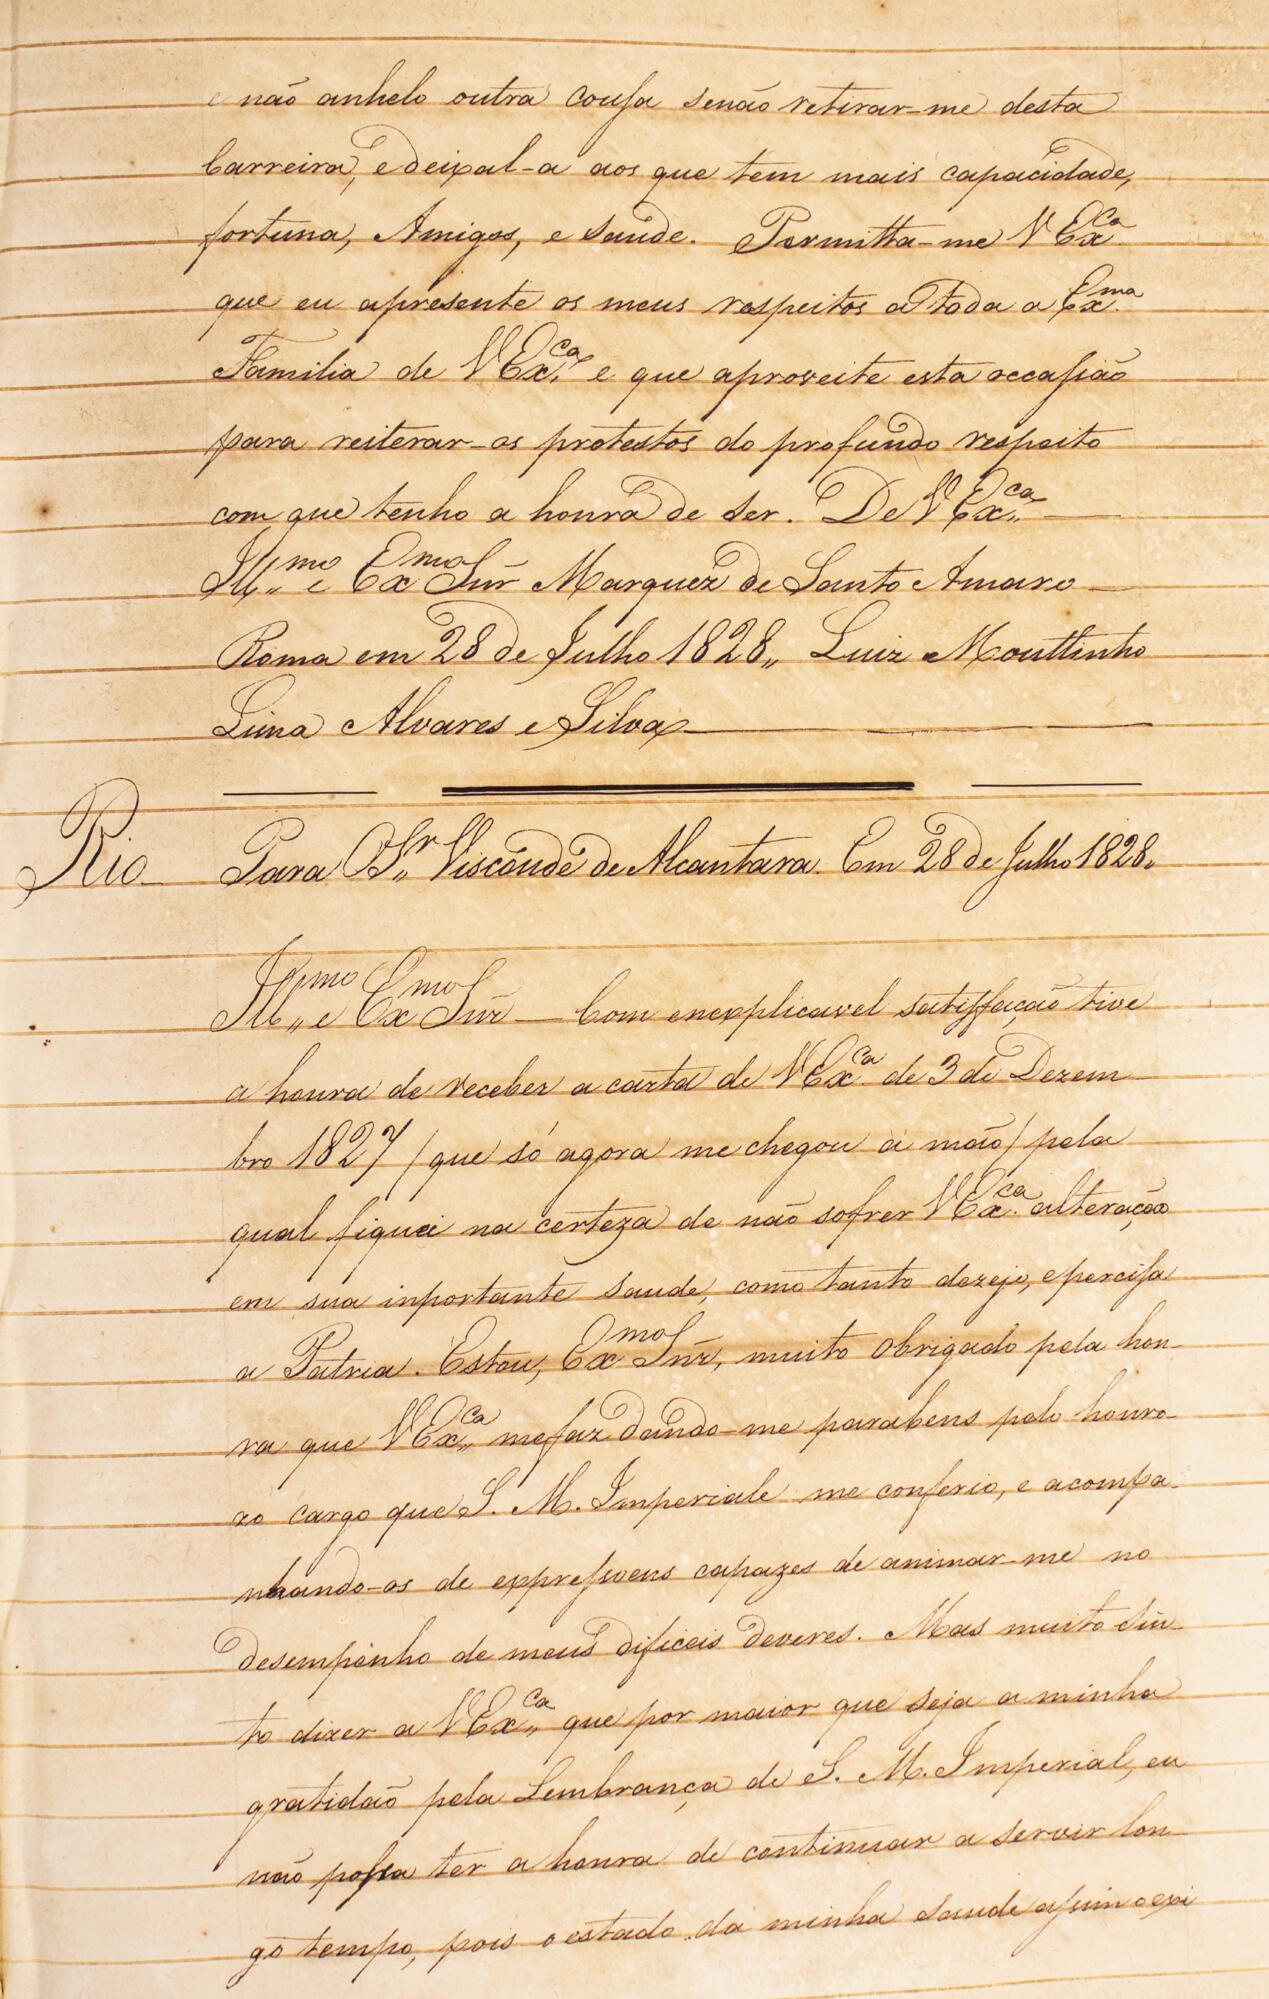 e não anhelo outra cousa senão retirar-me desta
Carreira, e deixal-a aos que tem mais capacidade,
fortuna, Amigos, e saude. Permitta-me V Ex.ca
que eu apresente os meus respeitos a toda a Ex.ma
Familia de V Ex.ca e que aproveite esta occasião
para reiterar-os protestos do profundo respeito
com que tenho a honra de ser. De V Ex.ca
Ill.mo e Ex.mo Snr̃ Marquez de Santo Amaro
Roma em 28 de Julho 1828,, Luiz Mouttinho
Lima Alvares e Silva
Rio
Para O S.r Visconde de Alcantara. Em 28 de Julho 1828,,
Ill.mo e Ex.mo Snr̃ — Com enexplicavel satisfação tive
a honra de receber a carta de V Ex.ca de 3 de Dezem
bro 1827 / que só agora me chegou á mão / pela
qual fiquei na certeza de não sofrer V Ex.ca alteração
em sua inportante saude, como tanto dezejo, e percisa
a Patria. Estou, Ex.mo Snr̃, muito obrigado pela hon-
ra que V Ex.ca me faz dando-me parabens pelo honro-
zo cargo que S. M. Imperiale me conferio, e acompa-
nhando-os de expressoens capazes de animar-me no
desempenho de meus dificeis deveres. Mas muito sin-
to dizer a V Ex.ca que por maior que seja a minha
gratidão pela Lembrança de S. M. Imperial, eu
não possa ter a honra de continuar a servir lon
go tempo, pois o estado da minha saude assim o exi